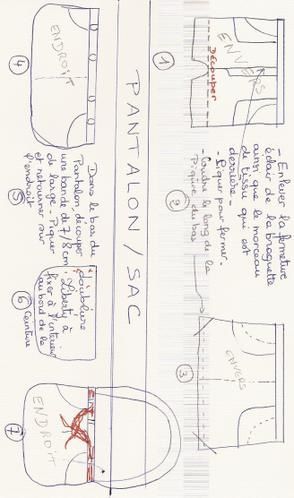 PANTALON / SAC
①
ENVERS
Découper
- Enlever la fermeture
éclair de la braguette
ainsi que le morceau
de tissu qui est
derrière -
- Piquer pour fermer.
②
- Coudre le long de la
Piqûre du bas
③
ENVERS
④
ENDROIT
Dans le bas du
Pantalon, découper
une bande de 7/8 cm
de large - Piquer
et retourner sur
l'endroit
⑤
doublure
Liberty à
fixer à l'intérieur
au bord de la
Ceinture
⑥
ENDROIT
⑦